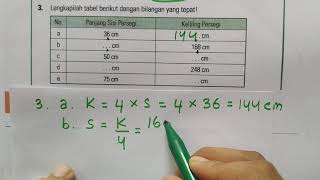 3. Lengkapilah tabel berikut dengan bilangan yang tepat!
No Panjang Sisi Persegi Keliling Persegi
a 36 cm 144 cm
b ... cm 168 cm
c 50 cm ... cm
d ... cm 248 cm
e 75 cm ... cm
3. a. K = 4 × s = 4 × 36 = 144 cm
b. s = K/4 = 16